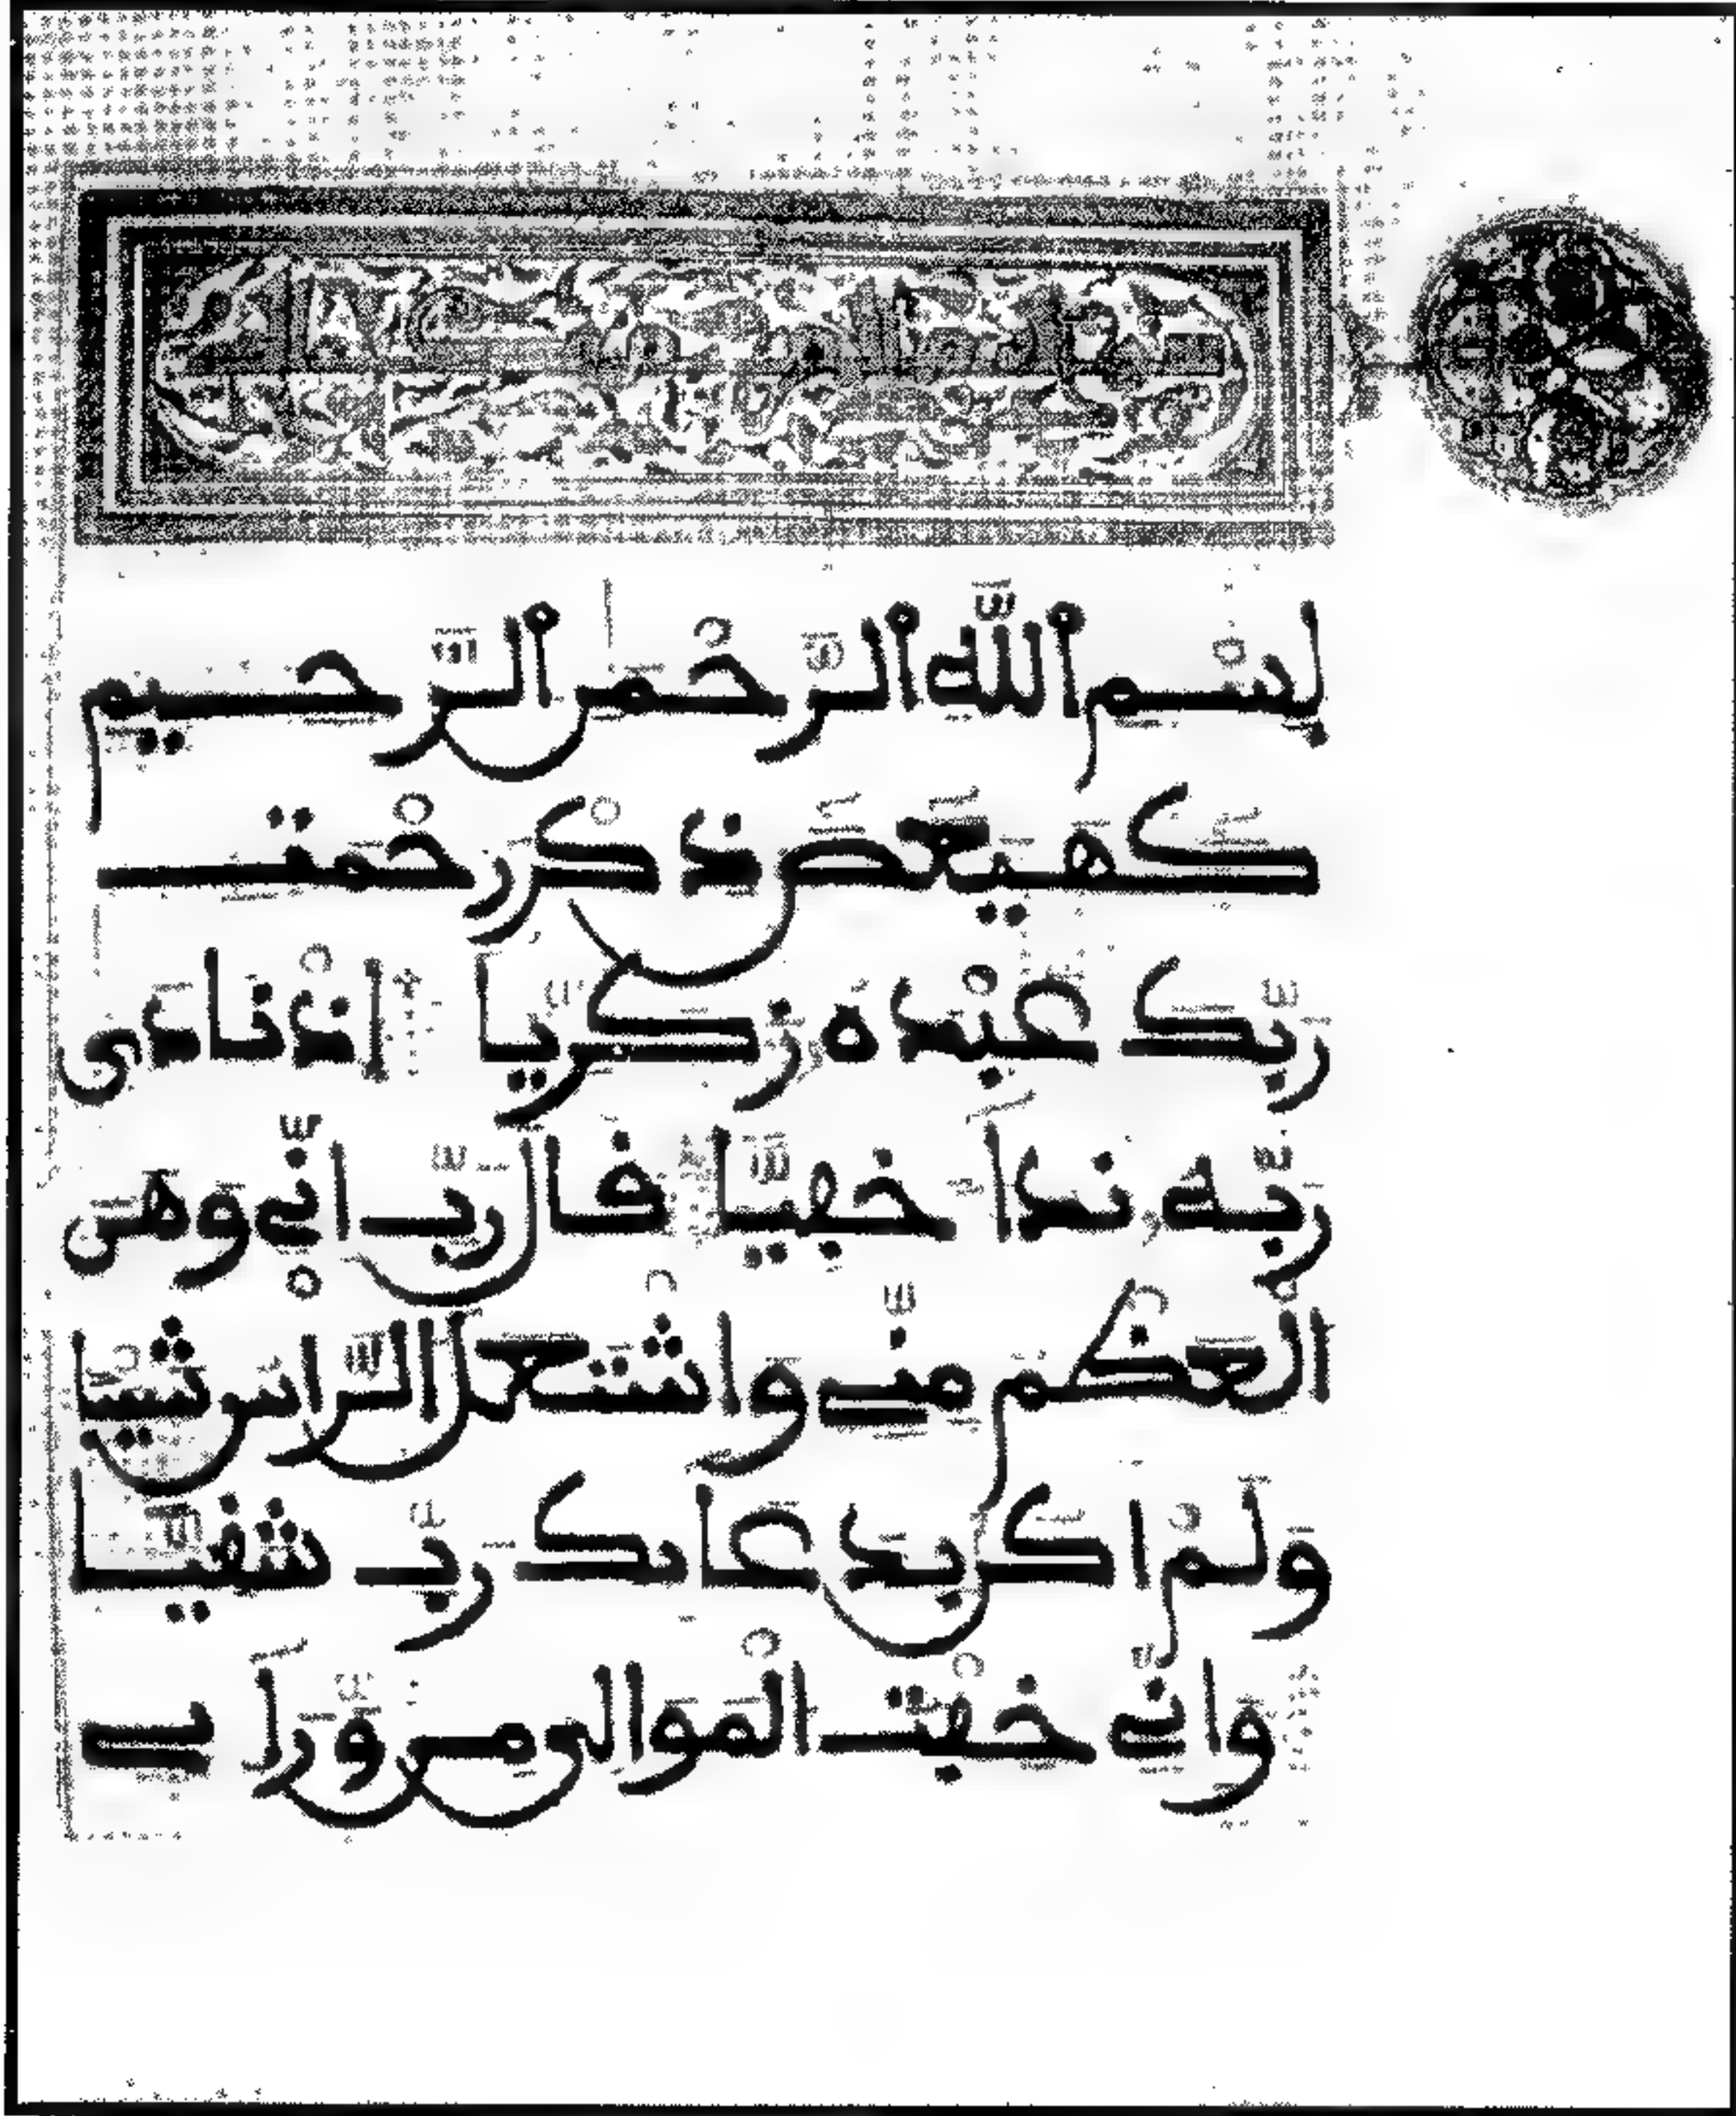 بسم الله الرحمن الرحيم
كهيعص ذكر رحمت
ربك عبده زكريا اذ نادى
ربه ندا خفيا قال رب انى وهن
العظم منى واشتعل الراس شيبا
ولم اكن بدعائك رب شقيا
وانى خفت الموالى من وراى